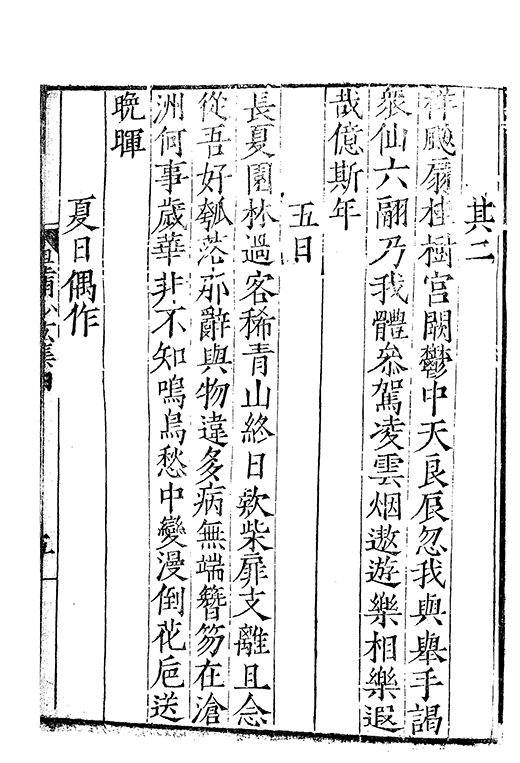 其二
祥飈扇桂樹宮闕鬱中天良辰忽我與舉手謁
衆仙六翮乃我體叅駕凌雲烟遨遊樂相樂遐
哉億斯年
五日
長夏園林過客稀青山終日欵柴扉支離且念
從吾好瓠落那辭與物違多病無端簪笏在滄
洲何事歲華非不知鳴鳥愁中變漫倒花巵送
晩暉
夏日偶作
五